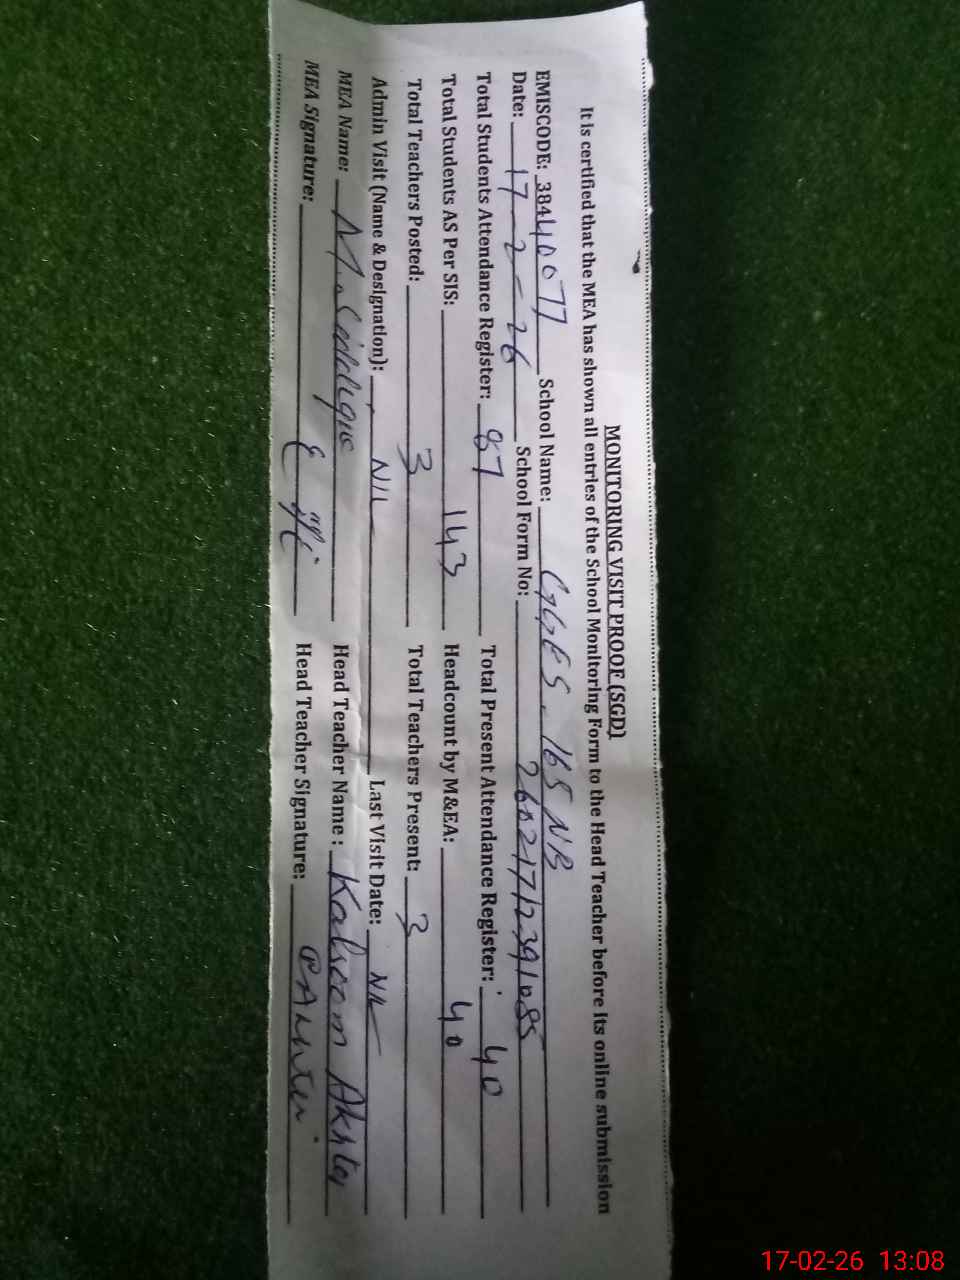 MONITORING VISIT PROOF (SGD)
It is certified that the MEA has shown all entries of the School Monitoring Form to the Head Teacher before its online submission
EMISCODE: 38440077 School Name: GGES. 165 NB
Date: 17-2-26 School Form No: 26021712391085
Total Students Attendance Register: 87 Total Present Attendance Register: 40
Total Students AS Per SIS: 143 Headcount by M&EA: 40
Total Teachers Posted: 3 Total Teachers Present: 3
Admin Visit (Name & Designation): NIL Last Visit Date: NIL
MEA Name: M. Siddique Head Teacher Name : Kalsoom Akhter
MEA Signature: Head Teacher Signature:
17-02-26 13:08